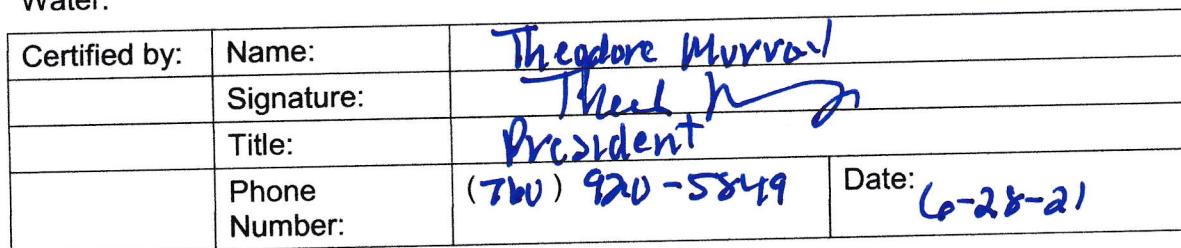 Water:
Certified by: Name: Theodore Murray
Signature:
Title: President
Phone Number: (760) 920-5849 Date: 6-28-21